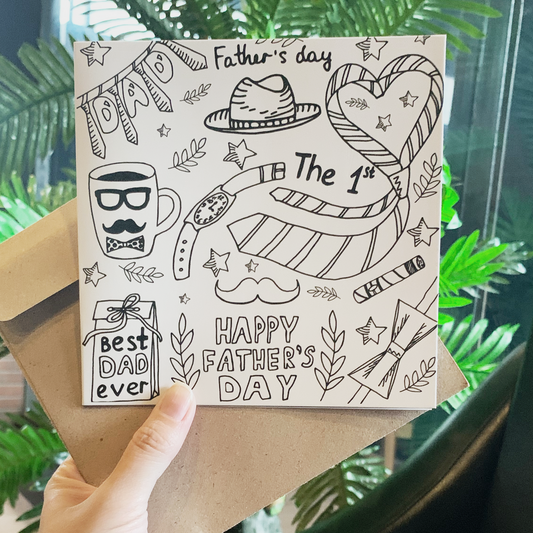 Father's day
DAD
The 1st
BEST
DAD
ever
HAPPY
FATHER'S
DAY